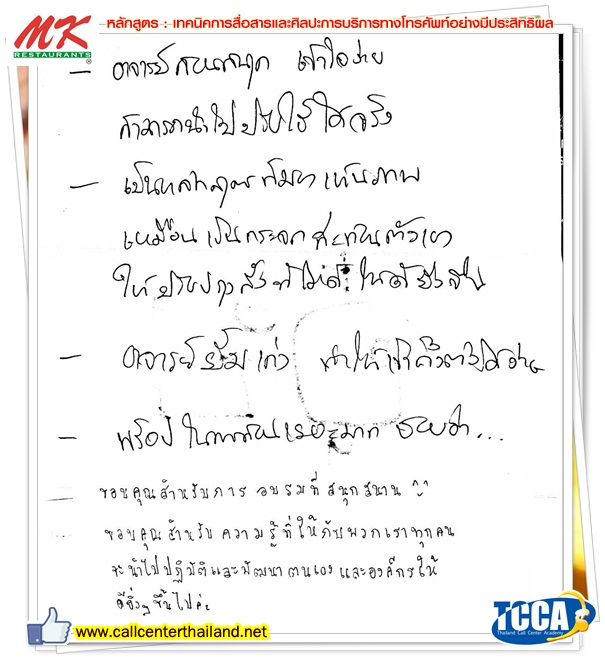 MK
RESTAURANTS®
หลักสูตร : เทคนิคการสื่อสารและศิลปะการบริการทางโทรศัพท์อย่างมีประสิทธิผล
- อาจารย์ เข้าใจง่าย
สามารถนำไปปรับใช้ได้จริง
- เป็นหลักสูตรที่มาเห็นภาพ
เหมือนเป็นกระจกสะท้อนตัวเรา
ให้ปรับปรุงสิ่งที่ไม่ดี ให้ดียิ่งขึ้น
- อาจารย์ยิ้มเก่ง ทำให้
-
- ขอบคุณสำหรับการอบรมที่สนุกสนาน
ขอบคุณสำหรับความรู้ที่ให้กับพวกเราทุกคน
จะนำไปปฏิบัติและพัฒนาตนเองและองค์กรให้
ดียิ่งๆขึ้นไปค่ะ
www.callcenterthailand.net
TCCA
Thailand Call Center Academy